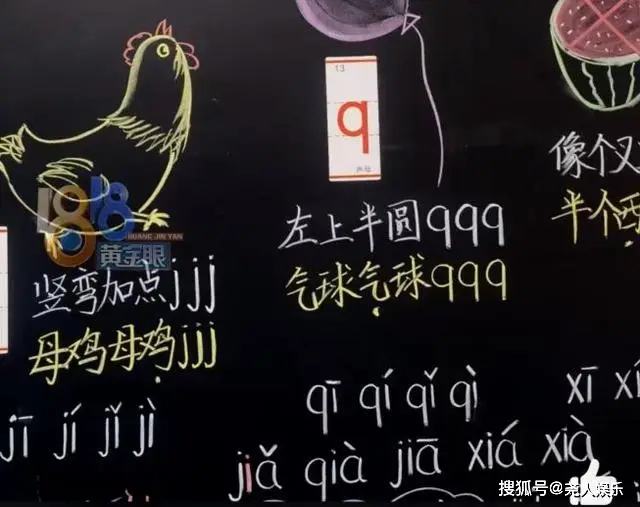 13
q
声母
1818
HUANG JIN YAN
黄金眼
竖弯加点jjj
母鸡母鸡jjj
左上半圆qqq
气球气球qqq
像个叉
半个西
jī jí jǐ jì
qī qí qǐ qì
xī xí
jiǎ qià jiā xiá xià
搜狐号@老人娱乐